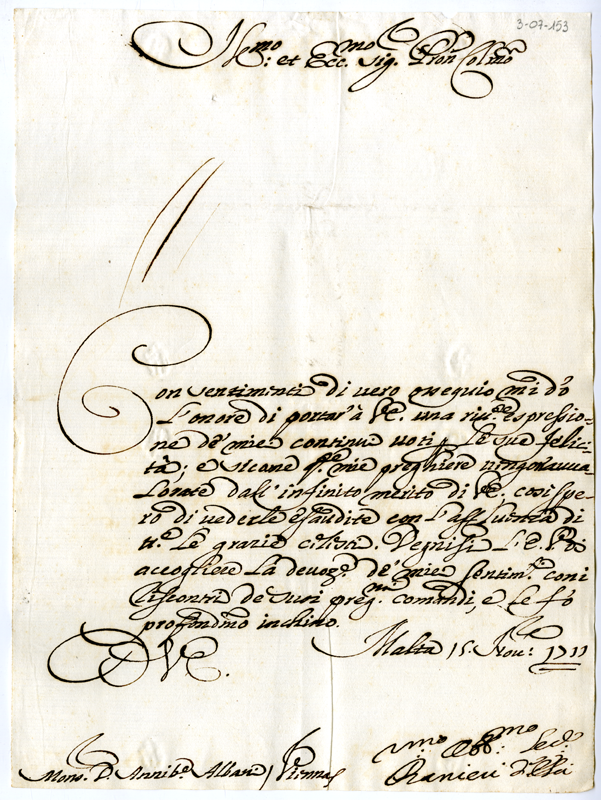 3-07-153
Ill.mo et Ecc.mo Sig. P.ron Col.mo
Con sentimenti di vero ossequio mi dò
l'onore di portar'à V.E. una riv.e espressio-
ne de' miei continui voti p le sue felici-
tà; e sicome q.te mie preghiere vengon avva-
lorate dall'infinito merito di V.E. così spe-
ro di vederle esaudite con l'affluenza di
t.e le grazie celesti. Degnisi L'E.V. di
accogliere la devoz.e de' miei sentim.ti con i
riscontri de suoi preg.mi comandi, e le fò
profondmo inchino.
Malta 15. Nov.e 1711
D V.E.
Vmo Obb.mo Sed.
Mons. D. Annib.e Albani / Vienna /
Ranieri d'Elci